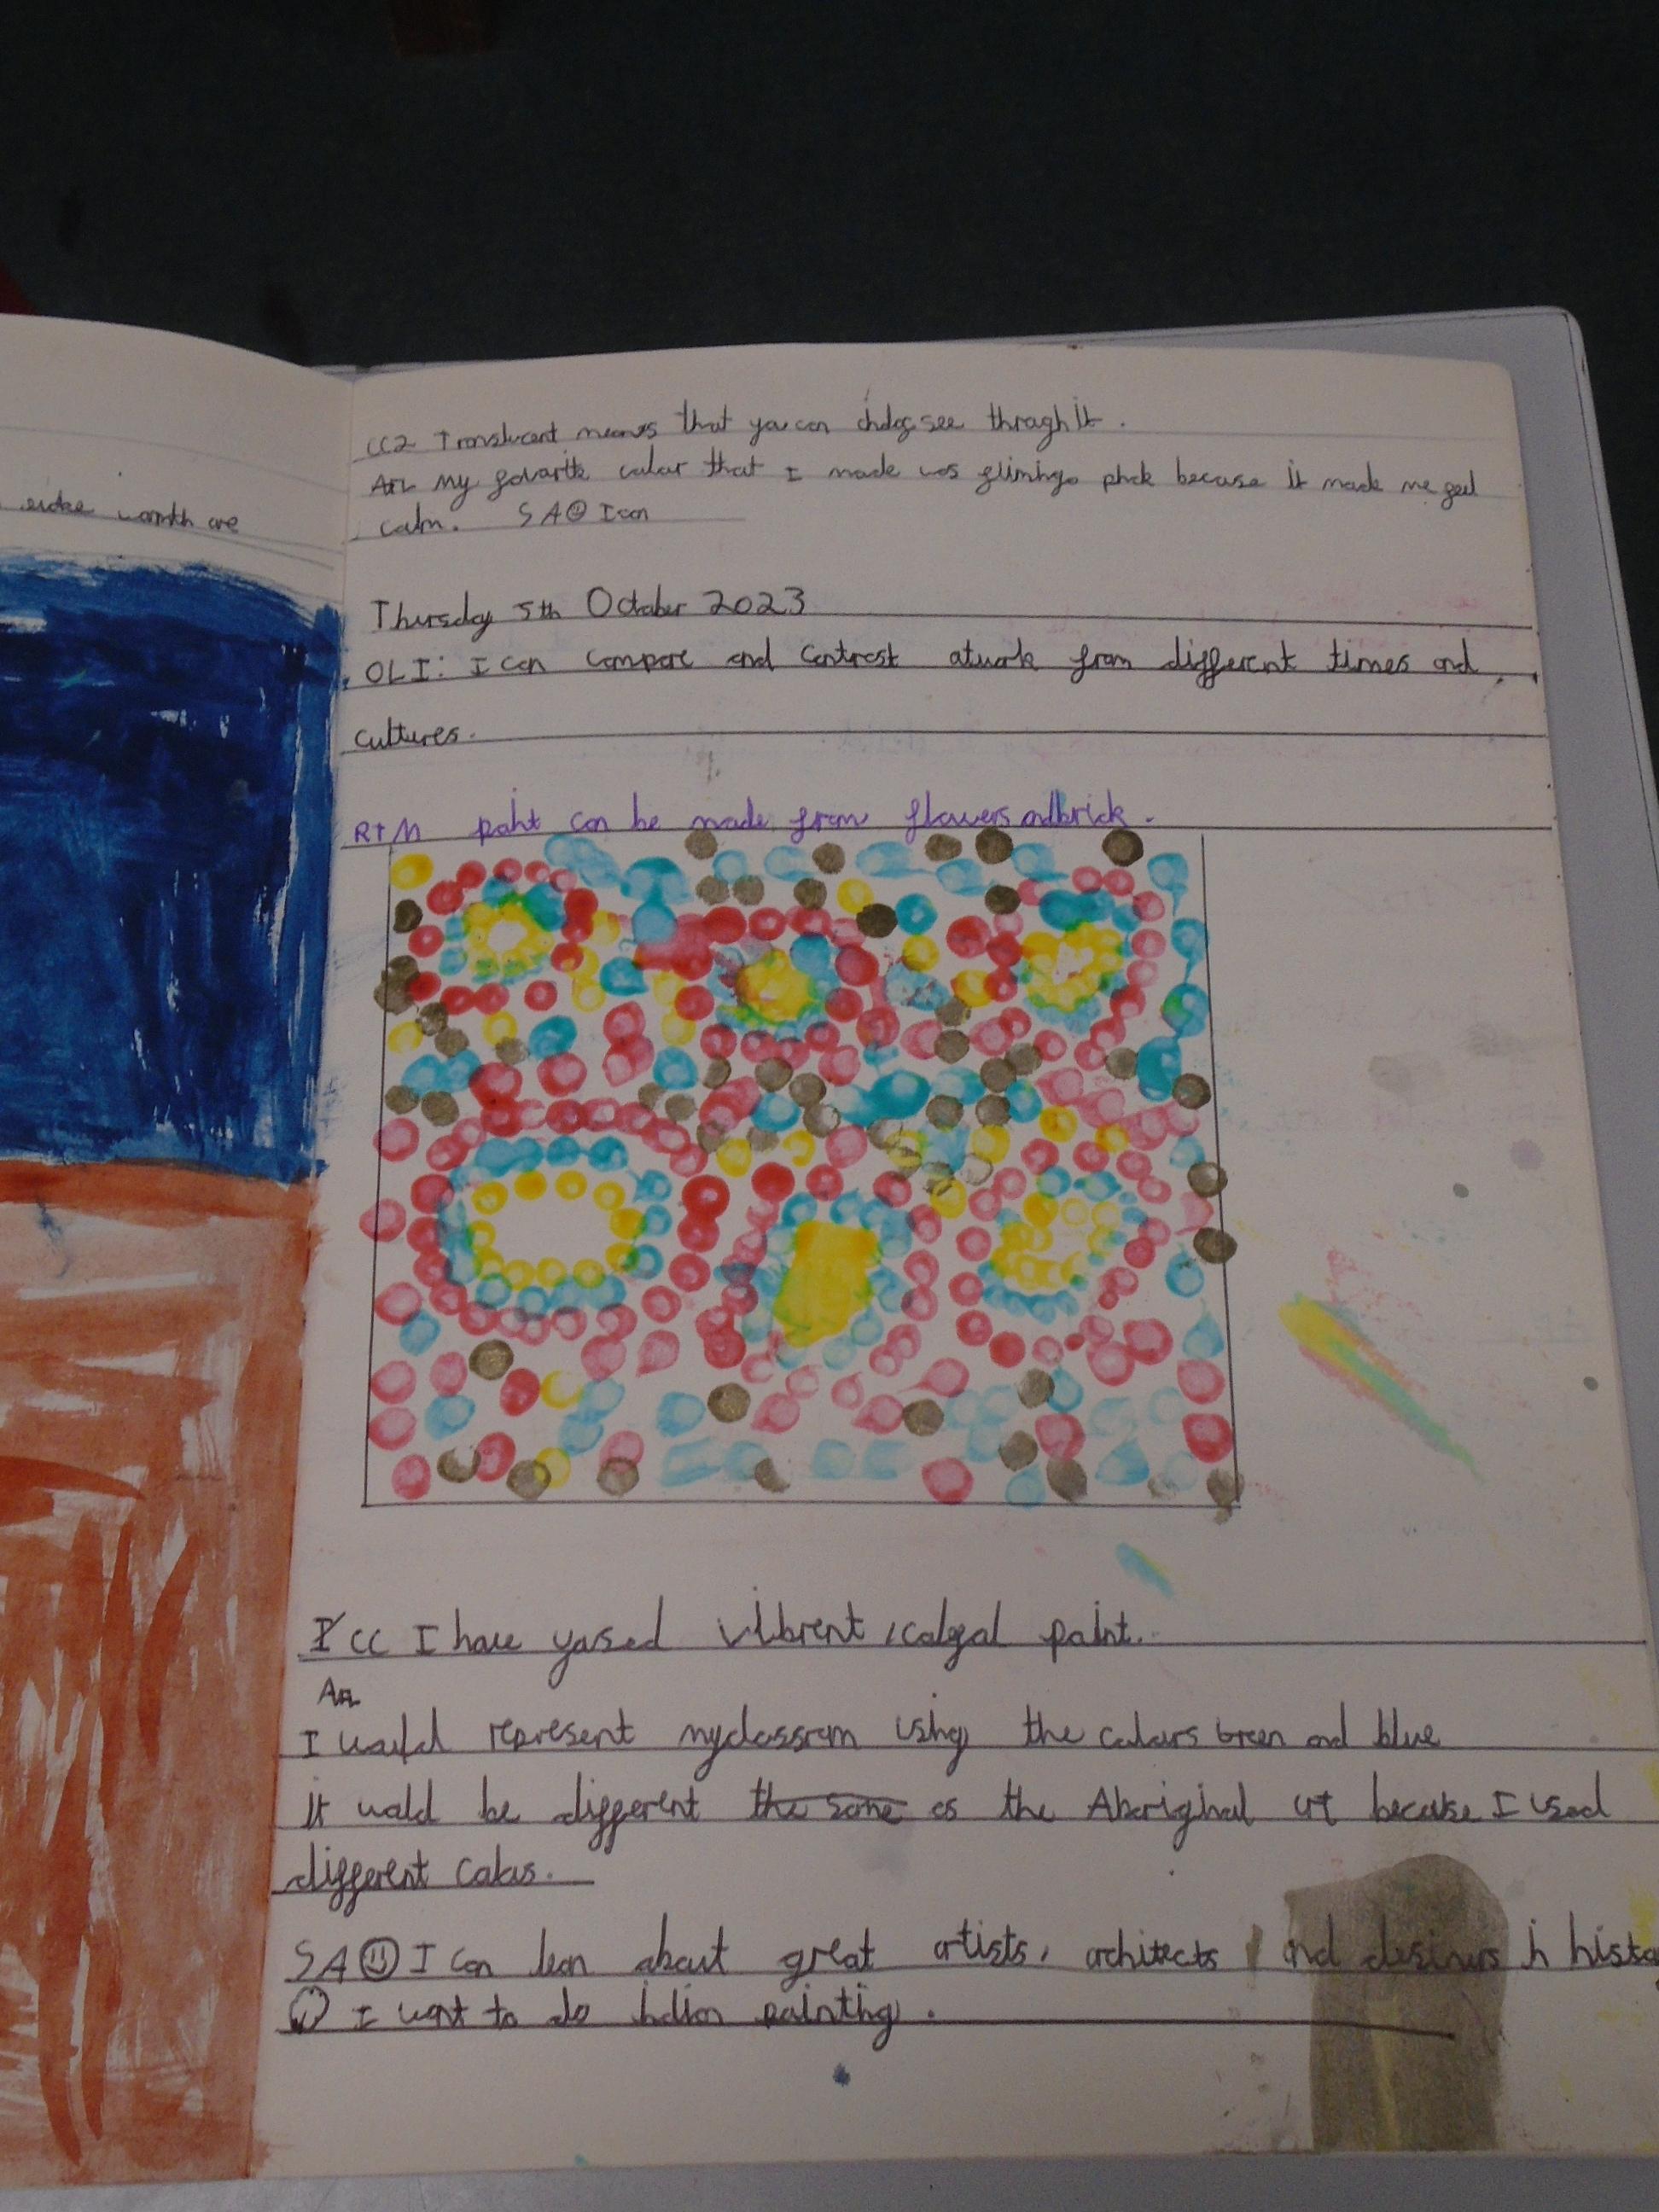 warmth are
CC2 Translucent means that you can see through it.
AFL My favarite colar that I made was flimingo pink because it made me feel
calm. SA☺ I can
Thursday 5th October 2023
OLI: I can compare and contrast atwork from different times and
cultures.
RTM paint can be made from flowers and brick.
CC I have yused vibrent, paint.
AFL
I would represent my classrom using the colours Green and blue
it wald be different the same as the Aboriginal art because I used
different colars.
SA☺ I can lean about great artists, architects and desiners in histo
I want to do indian painting.